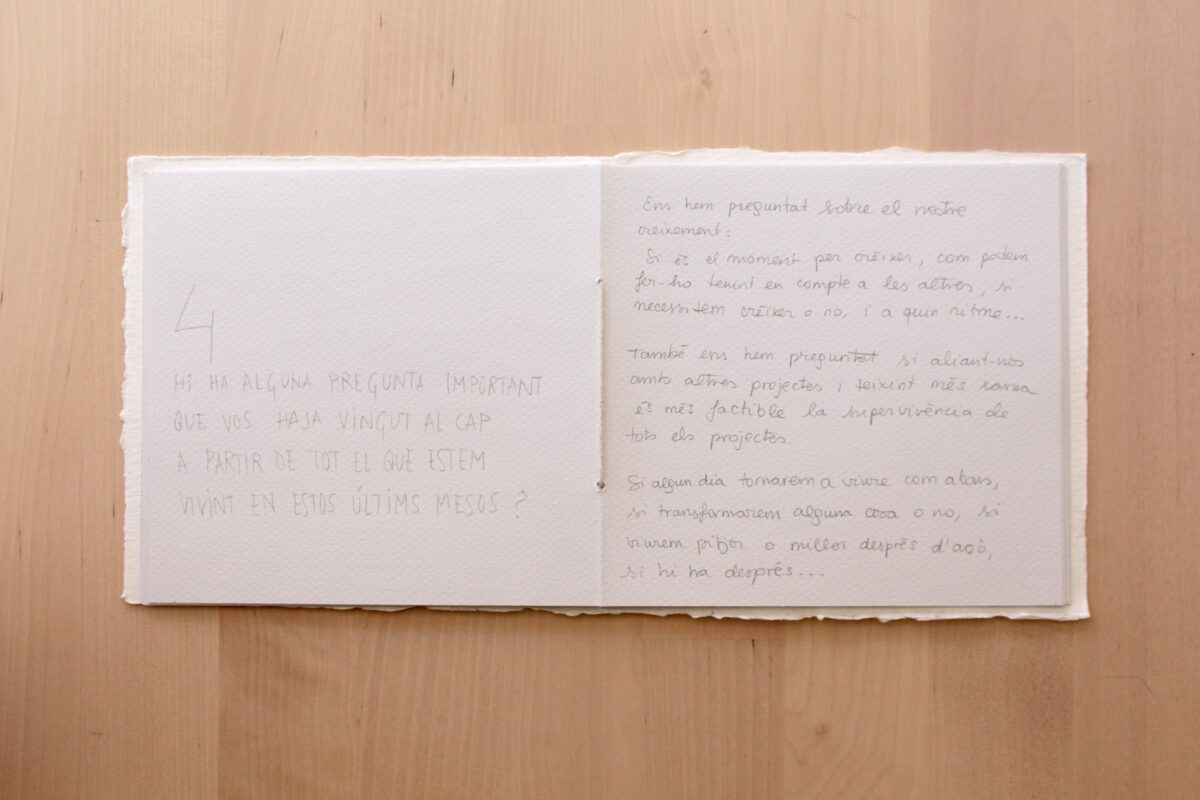 4
HI HA ALGUNA PREGUNTA IMPORTANT
QUE VOS HAJA VINGUT AL CAP
A PARTIR DE TOT EL QUE ESTEM
VIVINT EN ESTOS ÚLTIMS MESOS ?
Ens hem preguntat sobre el nostre
creixement:
Si és el moment per créixer, com podem
fer-ho tenint en compte a les altres, si
necessitem créixer o no, i a quin ritme...
També ens hem preguntat si aliant-nos
amb altres projectes i teixint més xarxa
és més factible la supervivència de
tots els projectes.
Si algun dia tornarem a viure com abans,
si transformarem alguna cosa o no, si
viurem pitjor o millor després d'açò,
si hi ha després...